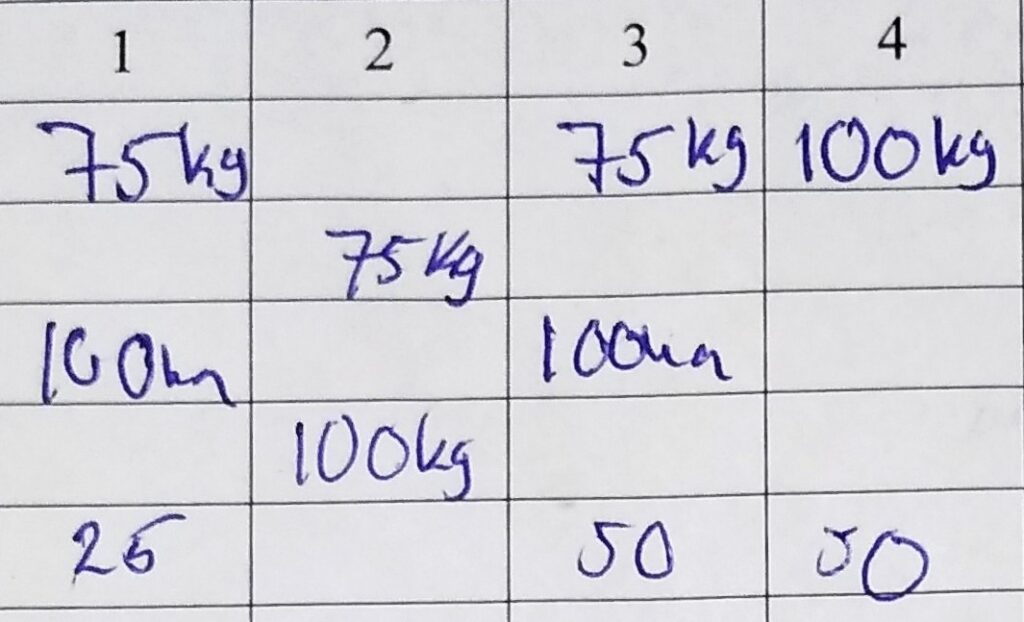 1 2 3 4
75kg 75kg 100kg
75kg
100
100kg
25 50 50